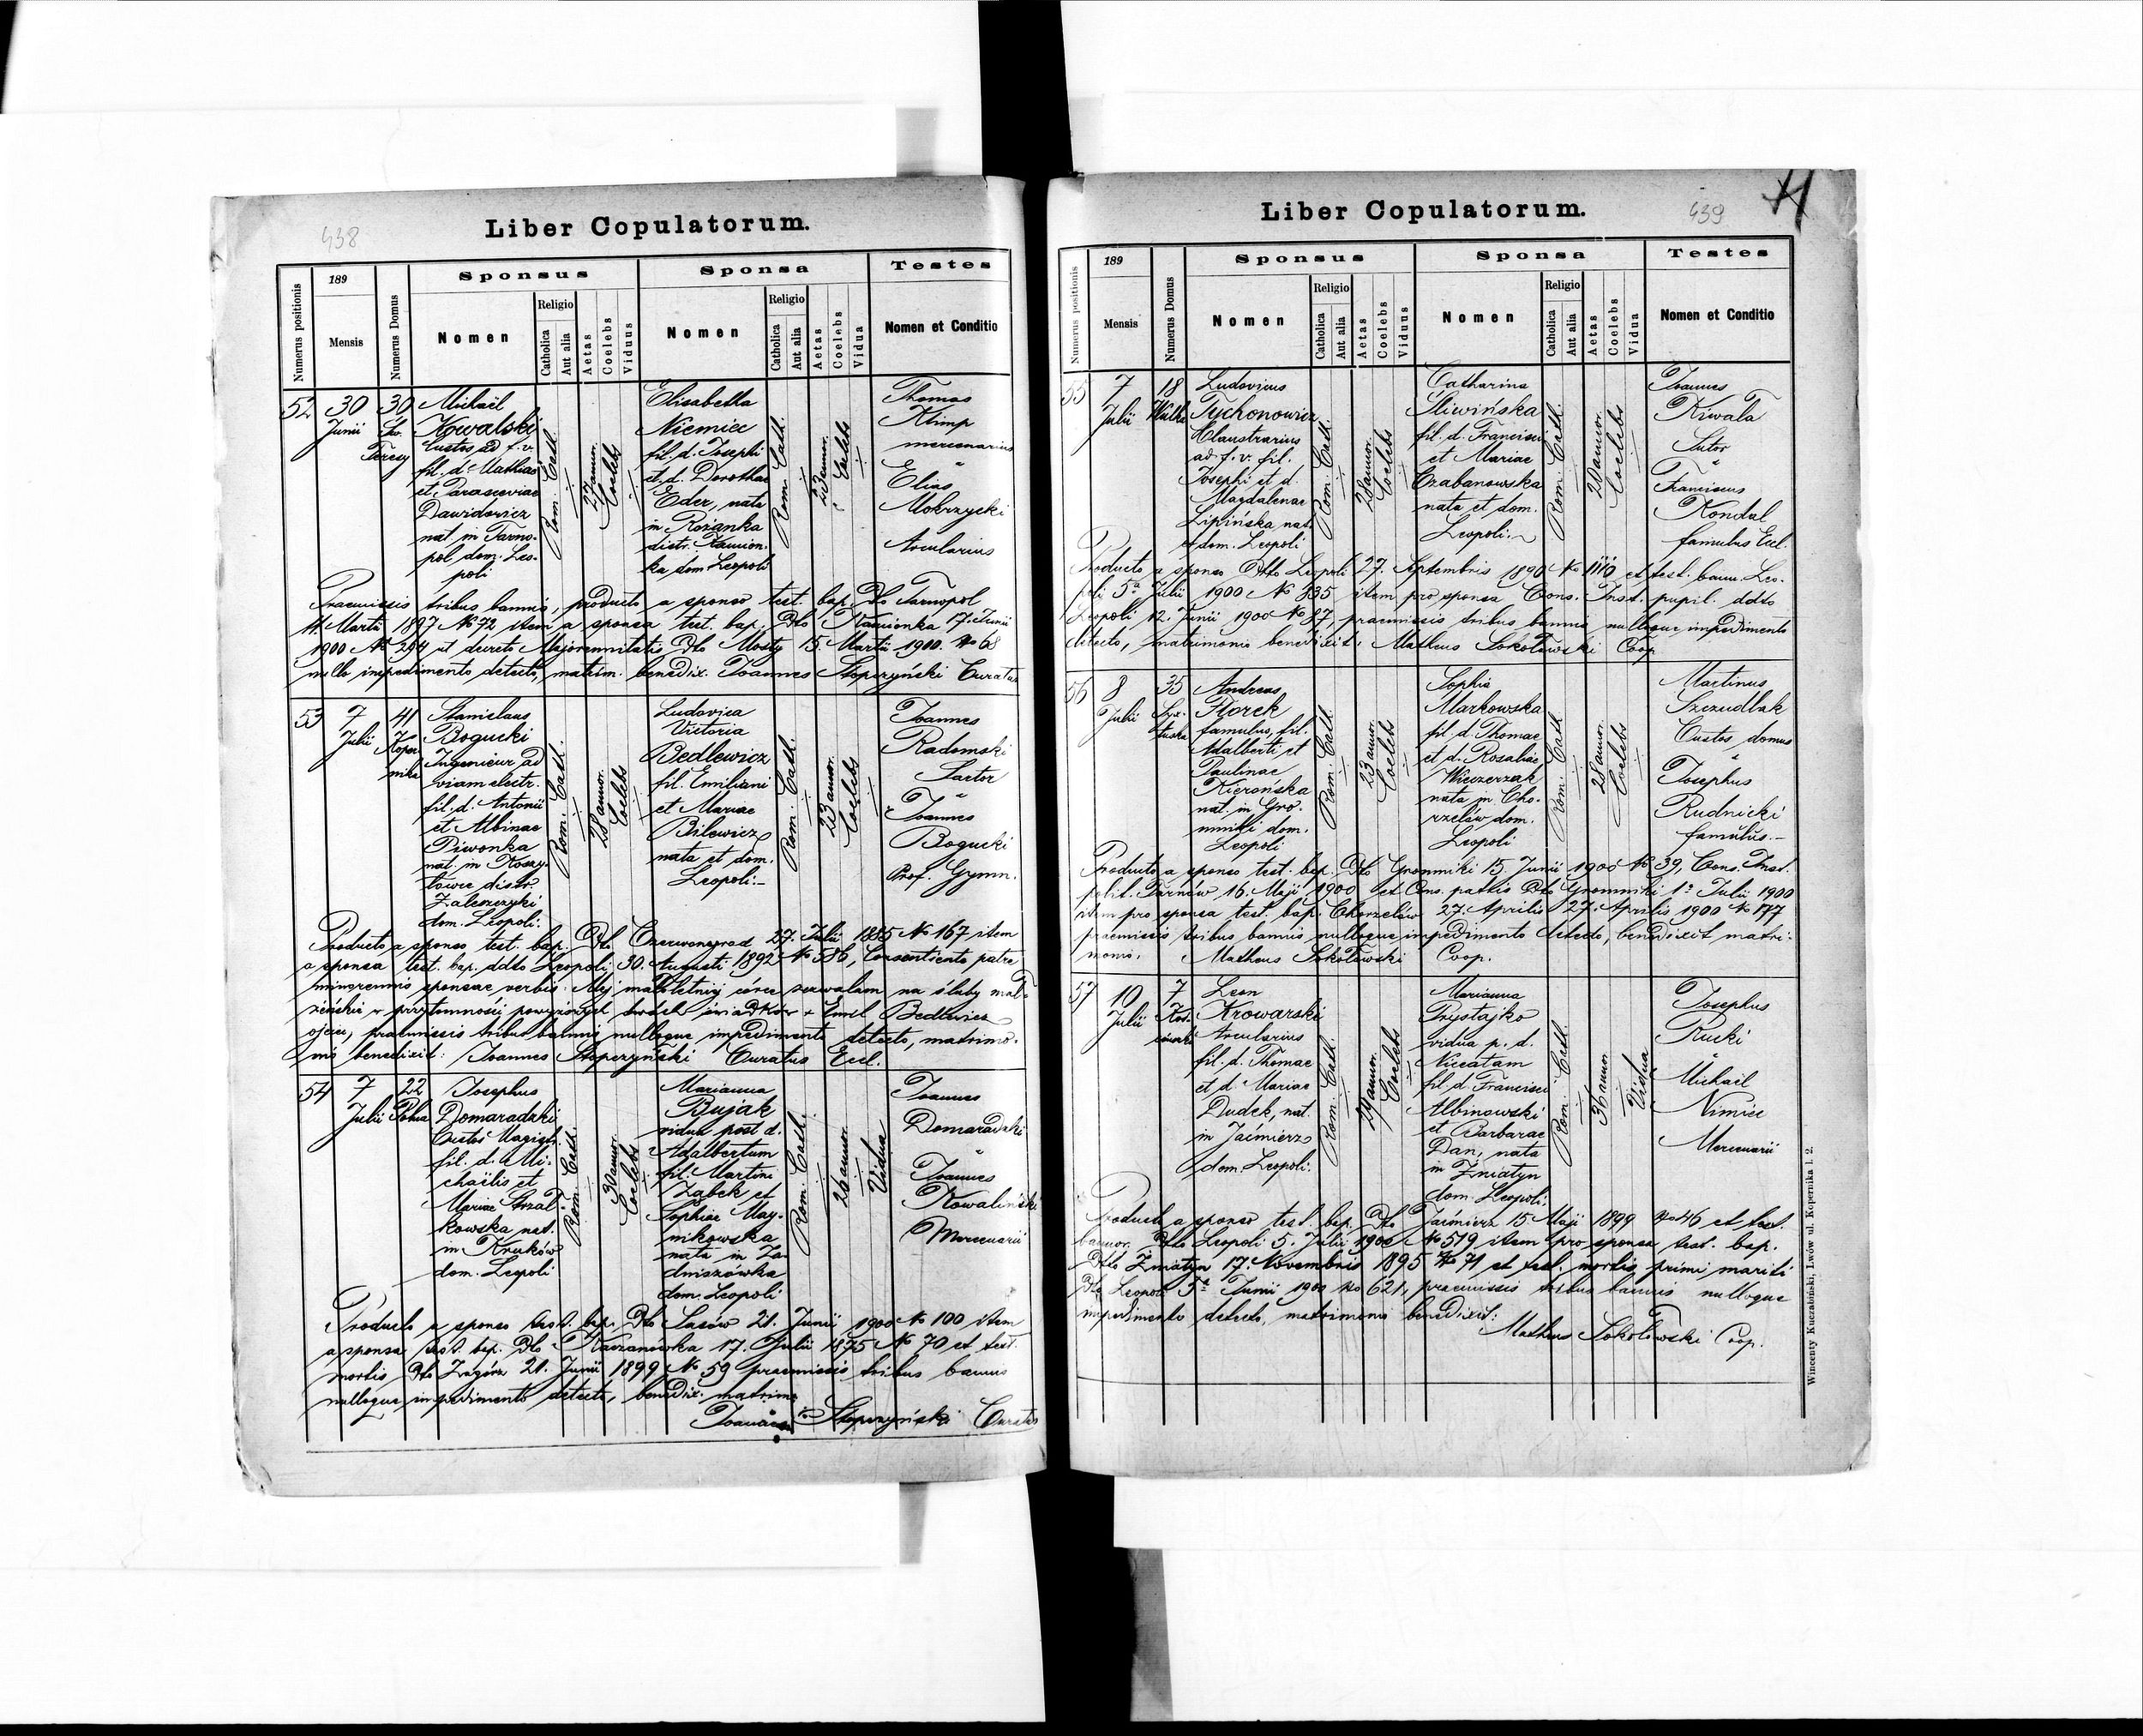 438
Liber Copulatorum.
Numerus positionis
189
Mensis
Numerus Domus
Sponsus
Nomen
Religio
Catholica
Aut alia
Aetas
Coelebs
Viduus
Sponsa
Nomen
Religio
Catholica
Aut alia
Aetas
Coelebs
Vidua
Testes
Nomen et Conditio
52
30
Junii
30
Św.
Teresy
Michaël
Kowalski
Custos ad f. v.
fil. d. Mathiae
et Parasceviae
Dawidowicz
nat. in Tarno-
pol dom. Leo-
poli
Rom. Cath.
27 annor.
Coelebs
Elisabetha
Niemiec
fil. d. Josephi
et d. Dorotheae
Eder, nata
in Rożanka
distr. Kamion-
ka dom. Leopoli
Rom. Cath.
23 annor.
Coelebs
Thomas
Klimp
mercenarius
Elias
Mokrzycki
Arcularius
Praemissis tribus bannis, producto a sponso test. bap. Dto Tarnopol
11. Martii 1897 No 72 item a sponsa test. bap. Dto Kamionka 17. Junii
1900 No 294 et decreto Majorennitatis Dto Mosty 15. Martii 1900. No 68
nullo impedimento detecto, matrim. benedix. Joannes Stopczyński Curatus
53
7
Julii
41
Koper
nika
Stanislaus
Bogucki
Ingenieur ad
viam electr.
fil. d. Antonii
et Albinae
Piwonka
nat. in Koszy-
łowce distr.
Zaleszczyki
dom. Leopoli.
Rom. Cath.
28 annor.
Coelebs
Ludovica
Victoria
Bedlewicz
fil. Emiliani
et Mariae
Bilewicz
nata et dom.
Leopoli.-
Rom. Cath.
23 annor.
Coelebs
Joannes
Radomski
Sartor
Joannes
Bogucki
Prof. Gymn.
Producto a sponso test. bap. Dto Czerwonogrod 27. Julii 1885 No 167 item
a sponsa test. bap. ddto Leopoli 30. Augusti 1892 No 586, Consentiente patre
minorennis sponsae verbis: Mej małoletniej córce zezwalam na śluby mał-
żeńskie w przytomności powyższych dwóch świadków + Emil Bedlewicz
ojciec, praemissis tribus bannis nulloque impedimento detecto, matrimo-
nio benedixit: Joannes Stopczyński Curatus Eccl.
54
7
Julii
22
Josephus
Domaradzki
Custos Magist.
fil. d. Mi-
chaëlis et
Mariae Strzał-
kowska nat.
in Kruków
dom. Leopoli
Rom. Cath.
30 annor.
Coelebs
Marianna
Bujak
vidua post d.
Adalbertum
fil. Martini
Ząbek et
Sophiae May-
nikowska
nata in Za-
dniszówka
dom. Leopoli
Rom. Cath.
26 annor.
Vidua
Joannes
Domaradzki
Joannes
Kowaliński
Mercenarii
Producto a sponso test. bap. Dto Sasów 21. Junii 1900 No 100 item
a sponsa test. bap. Dto Kaczanówka 17. Julii 1875 No 70 et test.
mortis Dto Zagórz 21. Junii 1899 No 59 praemissis tribus bannis
nulloque impedimento detecto, benedix. matrimo
Joannes Stopczyński Curatus
439
Liber Copulatorum.
Numerus positionis
189
Mensis
Numerus Domus
Sponsus
Nomen
Religio
Catholica
Aut alia
Aetas
Coelebs
Viduus
Sponsa
Nomen
Religio
Catholica
Aut alia
Aetas
Coelebs
Vidua
Testes
Nomen et Conditio
55
7
Julii
18
Wulka
Ludovicus
Tychonowicz
Claustrarius
ad f. v. fil.
Josephi et d.
Magdalenae
Lipińska nat.
et dom. Leopoli
Rom. Cath.
28 annor.
Coelebs
Catharina
Śliwińska
fil. d. Francisci
et Mariae
Czabanowska
nata et dom.
Leopoli.
Rom. Cath.
20 annor.
Coelebs
Joannes
Kiwala
Sutor
Franciscus
Kondal
famulus Eccl.
Producto a sponso Ddto Leopoli 27. Septembris 1890 No 1110 et test. bann. Leo-
poli 5a Julii 1900 No 835 item pro sponsa Cons. Inst. pupil. ddto
Leopoli 12. Junii 1900 No 87, praemissis tribus bannis nulloque impedimento
detecto, matrimonio benedixit: Matheus Sokołowski Coop
56
8
Julii
35
Syx-
tuska
Andreas
Florek
famulus, fil.
Adalberti et
Paulinae
Kierońska
nat. in Gro-
mniki dom.
Leopoli
Rom. Cath.
23 annor.
Coelebs
Sophia
Markowska
fil. d. Thomae
et d. Rosaliae
Wieczerzak
nata in Cho-
rzelów dom.
Leopoli
Rom. Cath.
28 annor.
Coelebs
Martinus
Szczudlak
Custos domus
Josephus
Rudnicki
famulus.-
Producto a sponso test. bap. Dto Gromniki 15. Junii 1900 No 39, Cons. Inst.
polit. Tarnów 16. Maji 1900 et Cons. patris Dto Gromniki 1a Julii 1900
item pro sponsa test. bap. Chorzelów 27. Aprilis 27. Aprilis 1900 No 177
praemissis tribus bannis nulloque impedimento detecto, benedixit matri-
monio. Matheus Sokołowski Coop.
57
10
Julii
7
Leon
Krowarski
Arcularius
fil. d. Thomae
et d. Mariae
Dudek, nat.
in Jaćmierz
dom. Leopoli.
Rom. Cath.
29 annor.
Coelebs
Marianna
Prystajko
vidua p. d.
Nicetam
fil. d. Francisci
Albinowski
et Barbarae
Dan, nata
in Żniatyn
dom. Leopoli.
Rom. Cath.
36 annor.
Vidua
Josephus
Rucki
Michaël
Nimiec
Mercenarii
Producto a sponso test. bap. Dto Jaćmierz 15. Maji 1899 No 46 et test.
bannor. Dto Leopoli 5. Julii 1900 No 519 item pro sponsa test. bap.
Ddto Żniatyn 17. Novembris 1895 No 71 et test. mortis primi mariti
Dto Leopoli 5a Junii 1900 No 621, praemissis tribus bannis nulloque
impedimento detecto, matrimonio benedixit:
Matheus Sokołowski Coop.
Wincenty Kuczabiński, Lwów ul. Kopernika l. 2.